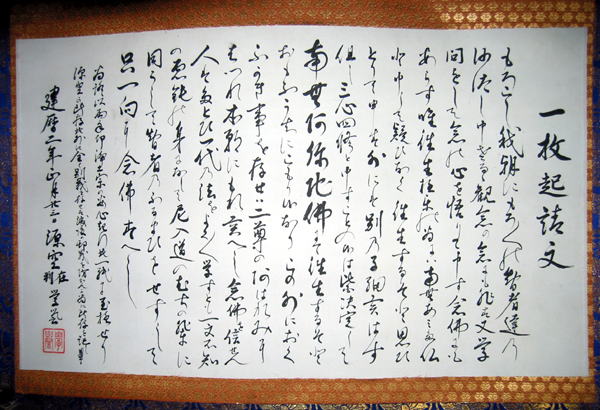 一枚起請文
もろこし我朝にもろ〱の智者達の
沙汰し申さるゝ観念の念にも非ず又学
問をして念の心を悟りて申す念佛にも
あらず唯往生極楽の為には南無あみだ仏
と申して疑ひなく往生するぞと思ひ
とりて申す外には別の子細候はず
但し三心四修と申すことの候は皆決定して
南無阿弥陀佛にて往生するぞと
おもふうちにこもり候なりこの外におく
ふかき事を存せば二尊の阿はれみに
はつれ本願にもれ候べし念佛を信せん
人はたとひ一代の法をよく〱学すとも一文不知
の愚鈍の身になして尼入道の無智の輩に
同うして智者乃ふるまひをせずして
只一向に念佛すべし
為証以両手印浄土宗の安心起行此一紙に至極せり
源空が所存此外に全く別義を存ぜず滅後の邪義を防がんが為に所存を記し畢
建暦二年正月廿三日 源空 在判